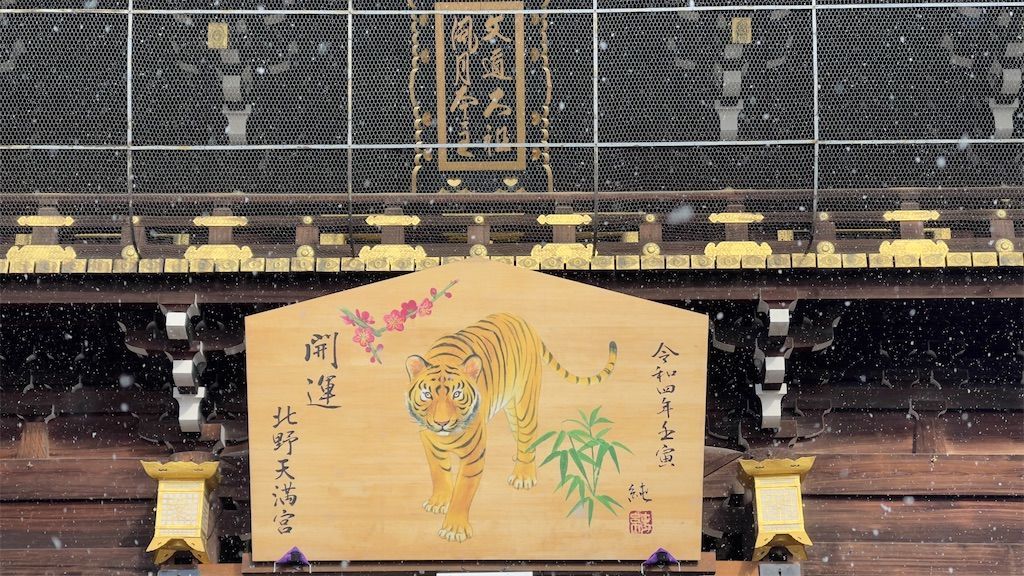 文道大祖
風月本主
令和四年壬寅
純
開運
北野天満宮